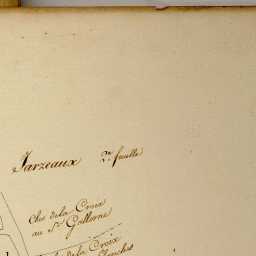 Jarzeaux 2e feuille
Clos de la Croix
au Sr Gallerne
de la Croix